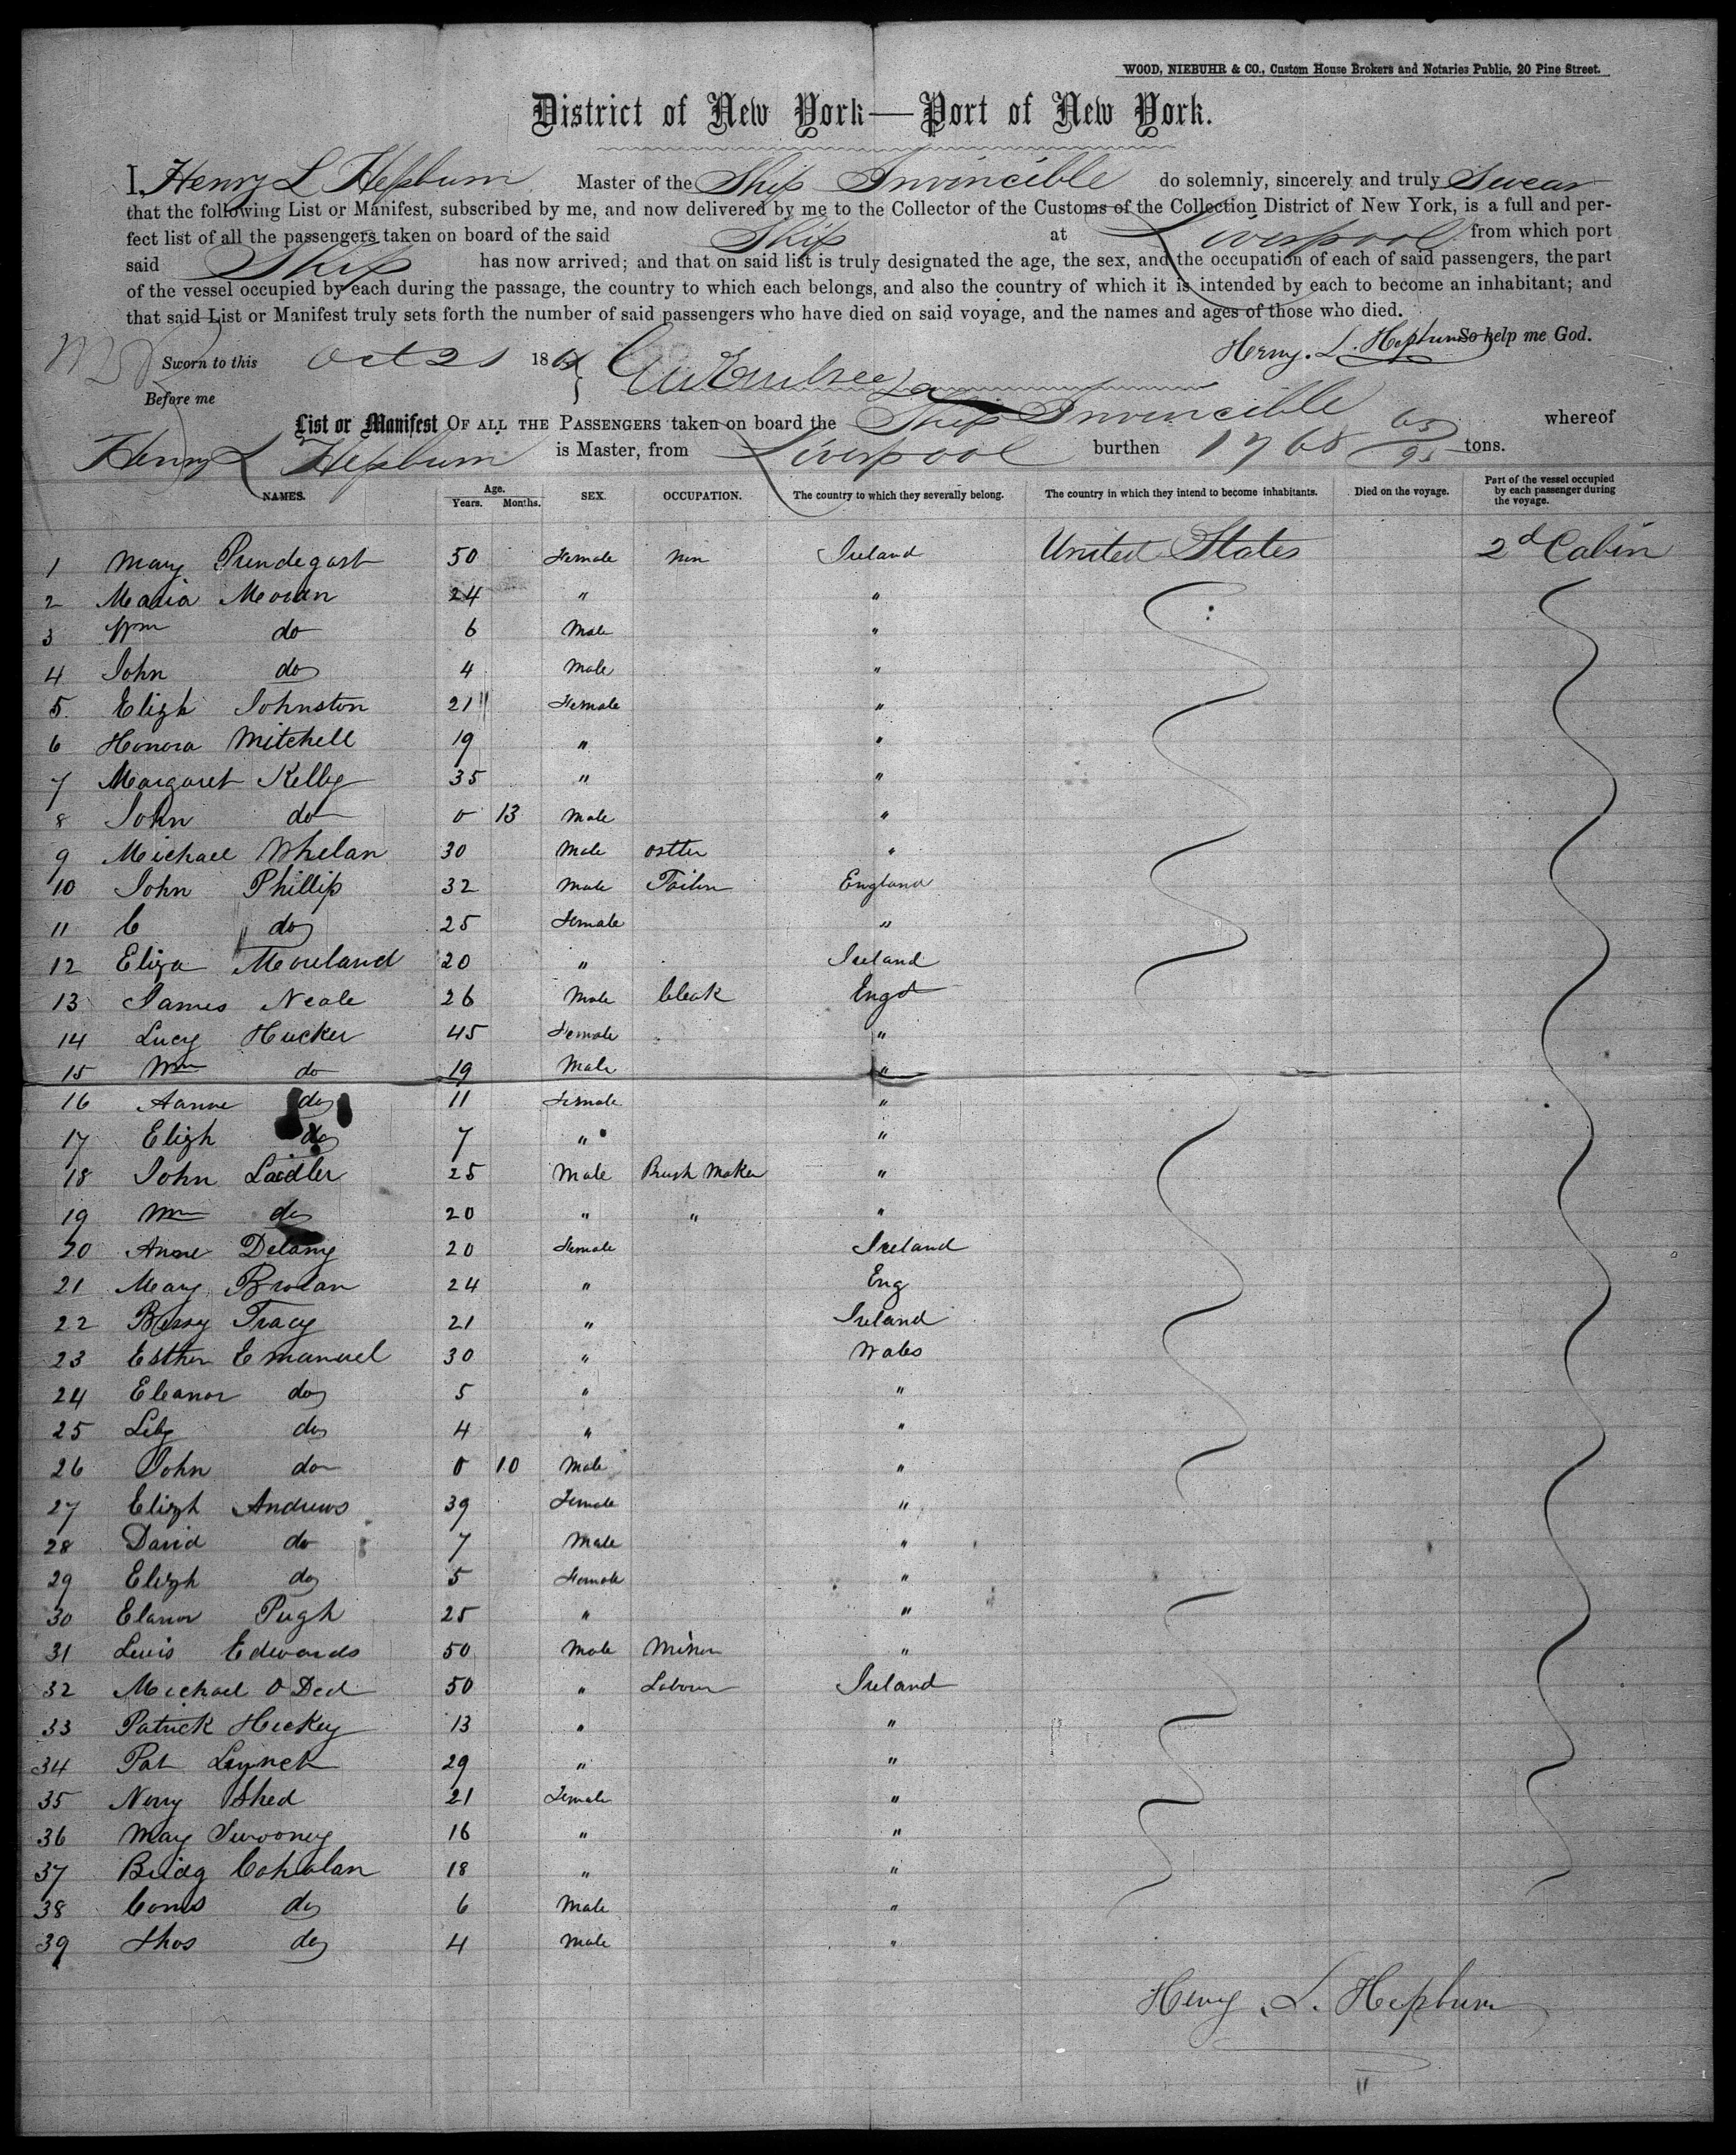 WOOD, NIEBUHR & CO., Custom House Brokers and Notaries Public, 20 Pine Street.
District of New York—Port of New York.
I, Henry L Hepburn Master of the Ship Invincible do solemnly, sincerely and truly Swear
that the following List or Manifest, subscribed by me, and now delivered by me to the Collector of the Customs of the Collection District of New York, is a full and per-
fect list of all the passengers taken on board of the said Ship at Liverpool from which port
said Ship has now arrived; and that on said list is truly designated the age, the sex, and the occupation of each of said passengers, the part
of the vessel occupied by each during the passage, the country to which each belongs, and also the country of which it is intended by each to become an inhabitant; and
that said List or Manifest truly sets forth the number of said passengers who have died on said voyage, and the names and ages of those who died.
So help me God.
Sworn to this Oct 21 186 Henry. L. Hepburn
Before me
List or Manifest OF ALL THE PASSENGERS taken on board the Ship Invincible whereof
Henry L Hepburn is Master, from Liverpool burthen 1768 65/95 tons.
NAMES. Age. Years. Months. SEX. OCCUPATION. The country to which they severally belong. The country in which they intend to become inhabitants. Died on the voyage. Part of the vessel occupied by each passenger during the voyage.
1 Mary Prendegast 50 Female Non Ireland United States 2d Cabin
2 Maria Moran 24 " "
3 Wm do 6 Male "
4 John do 4 Male "
5. Elizh Johnston 21 Female "
6 Honora Mitchell 19 " "
7 Margaret Kelly 35 " "
8 John do 0 13 Male "
9 Michael Whelan 30 Male ostler "
10 John Phillip 32 Male Tailor England
11 C do 25 Female "
12 Eliza Moreland 20 " Ireland
13 James Neale 26 Male Cleak Engd
14 Lucy Hucker 45 Female "
15 Wm do 19 Male "
16 Aanne do 11 Female "
17 Elizh do 7 " "
18 John Laidler 25 Male Brush Maker "
19 Wm do 20 " " "
20 Anne Delany 20 Female Ireland
21 Mary Brodan 24 " Eng
22 Bessy Tracy 21 " Ireland
23 Esther Emanuel 30 " Wales
24 Eleanor do 5 " "
25 do 4 " "
26 John do 0 10 Male "
27 Elizh Andrews 39 Female "
28 David do 7 Male "
29 Elizh do 5 Female "
30 Elanor Pugh 25 " "
31 Lewis Edwards 50 Male Miner "
32 Michael O Ded 50 " Labour Ireland
33 Patrick Hickey 13 " "
34 Pat Lynch 29 " "
35 Shed 21 Female "
36 May Swooney 16 " "
37 Bridg Cohalan 18 " "
38 Corns do 6 Male "
39 Thos do 4 Male "
Henry. L. Hepburn